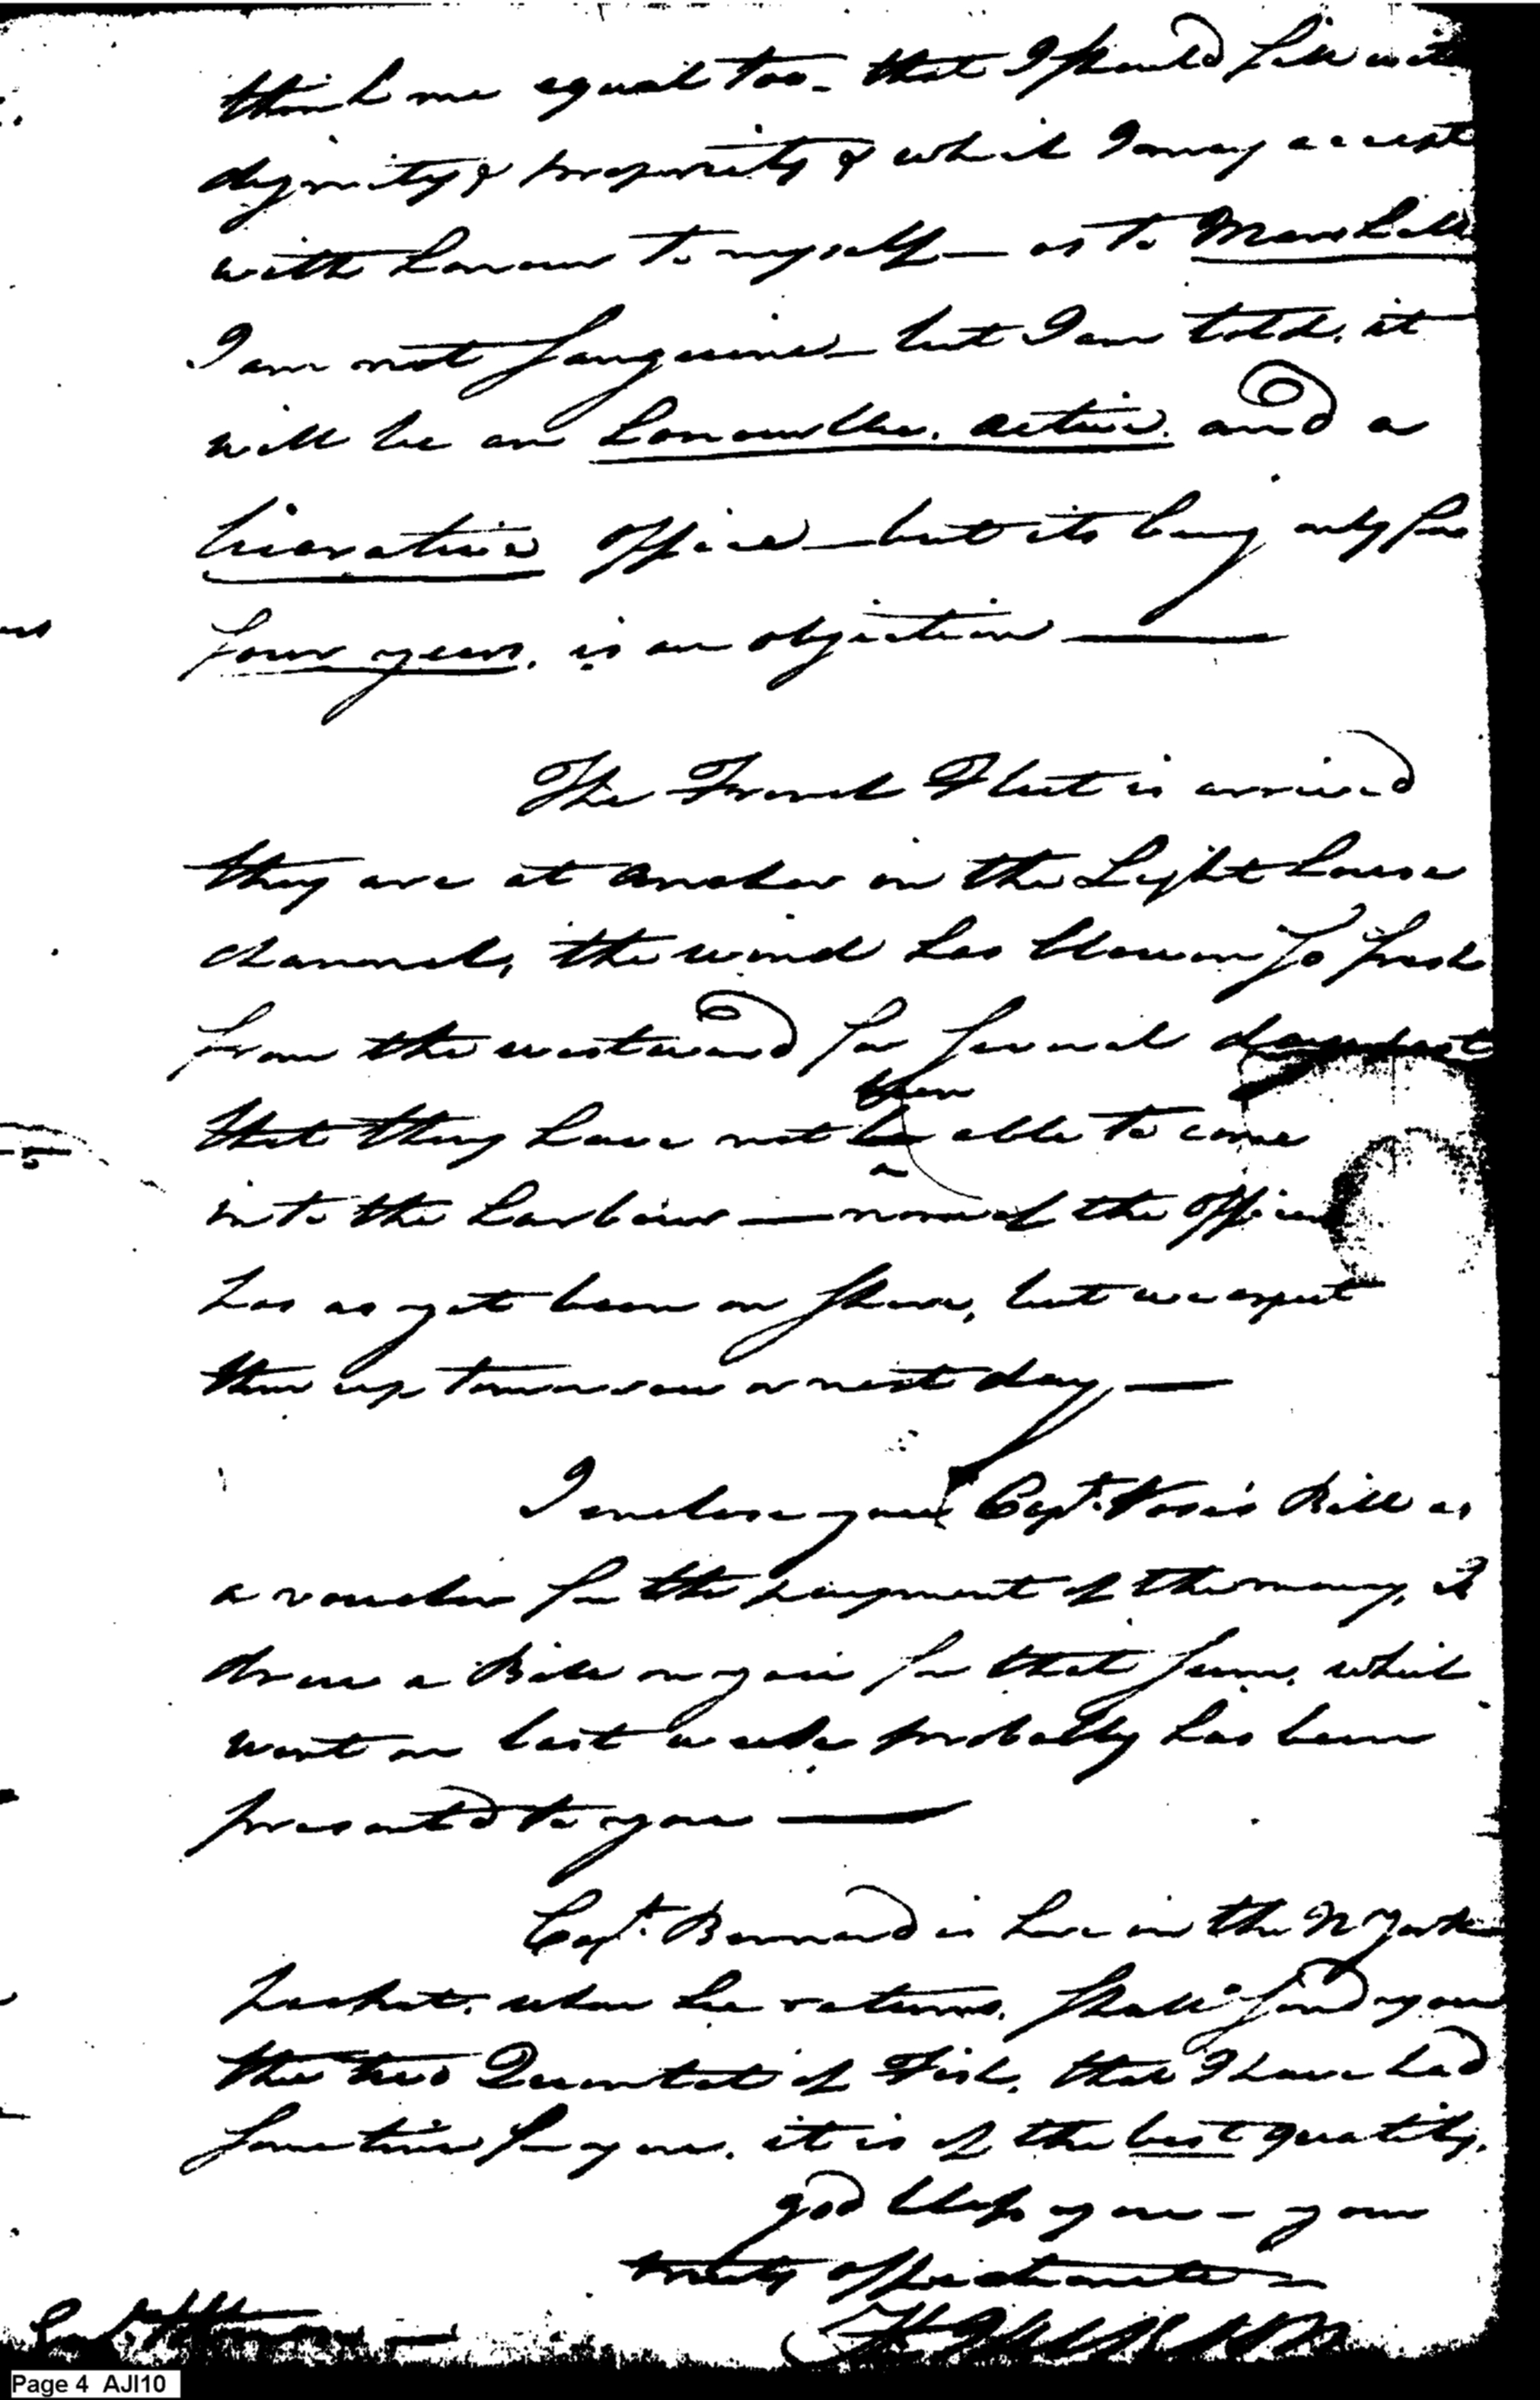 think me equal too — that I should fill with
dignity & propriety & which I may accept
with honour to myself — as to Marshall
I am not sanguine — but I am told, it
will be an honourable, active, and a
lucrative office — but its being only for
four years, is an objection —
The French Fleet is arrived
they are at anchor in the Light house
channel, the wind has blown so fresh
from the westward for several days past
that they have not been able to come
into the harbour — none of the officers
has as yet been on shore, but we expect
them up tomorrow or next day —
I enclose you Capt. Vose's Bill as
a voucher for the payment of the money, I
drew a Bill on you for that sum, which
went on last week, probably has been
presented to you —
Capt. Barnard is here in the N York
packet, when he returns, shall send you
the two Quintals of Fish, that I have had
some time for you, it is of the best quality,
god bless you — your
truly affectionate —
Page 4 AJI10